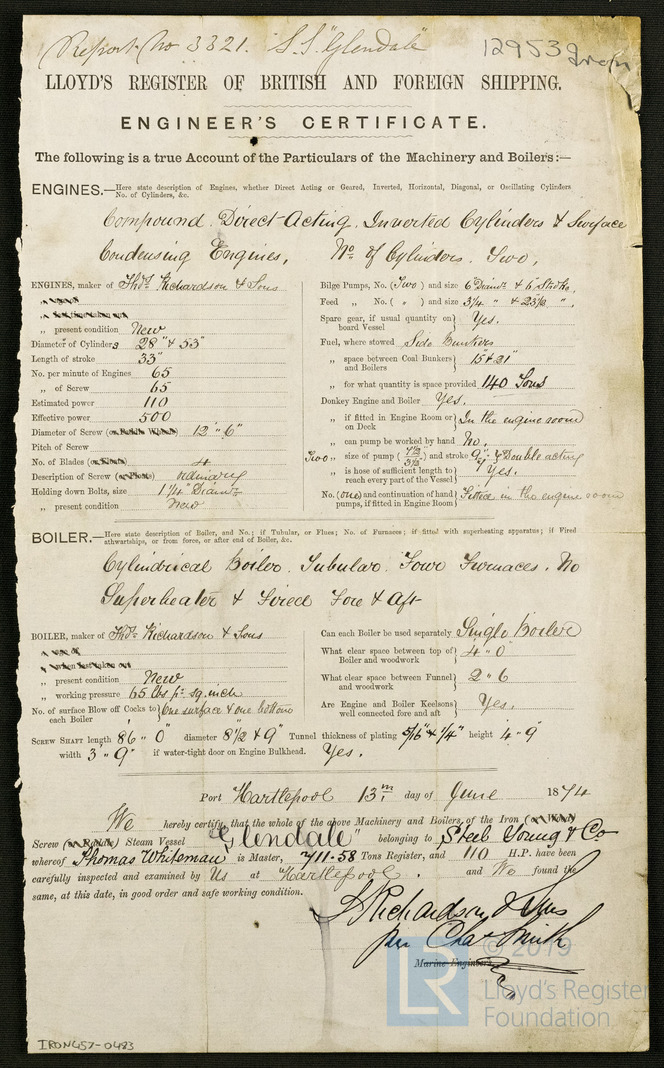 Report No 3321. S.S. "Glendale" 12953 Iron
LLOYD'S REGISTER OF BRITISH AND FOREIGN SHIPPING.
ENGINEER'S CERTIFICATE.
The following is a true Account of the Particulars of the Machinery and Boilers:—
ENGINES.—Here state description of Engines, whether Direct Acting or Geared, Inverted, Horizontal, Diagonal, or Oscillating Cylinders
No. of Cylinders, &c.
Compound. Direct Acting. Inverted Cylinders & Surface
Condensing Engines, No of Cylinders. Two,
ENGINES, maker of Thos Richardson & Sons
„ present condition New
Diameter of Cylinders 28" & 53"
Length of stroke 33"
No. per minute of Engines 65
„ of Screw 65
Estimated power 110
Effective power 500
Diameter of Screw 12'" 6"
Pitch of Screw
No. of Blades 4
Description of Screw ordinary
Holding down Bolts, size 1 1/4" Diamr
„ present condition New
Bilge Pumps, No. (Two) and size 6 Diamr & 6 Stroke,
Feed „ No. ( „ ) and size 3 1/4 " & 23 1/2 " „
Spare gear, if usual quantity on board Vessel } Yes.
Fuel, where stowed Side Bunkers
„ space between Coal Bunkers and Boilers } 15 & 21"
„ for what quantity is space provided 140 Tons
Donkey Engine and Boiler Yes.
„ if fitted in Engine Room or on Deck } In the engine room
„ can pump be worked by hand No,
Two „ size of pump ( 7 1/2 3 1/2 ) and stroke 9" & 7 Double acting
„ is hose of sufficient length to reach every part of the Vessel } Yes.
No. (one) and continuation of hand pumps, if fitted in Engine Room } Fitted in the engine room
BOILER.—Here state description of Boiler, and No.; if Tubular, or Flues; No. of Furnaces; if fitted with superheating apparatus; if Fired
athwartships, or from force, or after end of Boiler, &c.
Cylindrical Boiler. Tubular. Four Furnaces. No
Superheater & Fired Fore & Aft
BOILER, maker of Thos Richardson & Sons
„ present condition New
„ working pressure 65 lbs pr sq. inch
No. of surface Blow off Cocks to each Boiler } One surface & one bottom
Can each Boiler be used separately Single Boiler
What clear space between top of Boiler and woodwork } 4 " 0"
What clear space between Funnel and woodwork } 2 " 6
Are Engine and Boiler Keelsons well connected fore and aft } Yes.
SCREW SHAFT length 86 " 0" diameter 8 1/2 & 9" Tunnel thickness of plating 5/16" & 1/4" height 4 " 9"
width 3 " 9" if water-tight door on Engine Bulkhead. Yes.
Port Hartlepool 13th day of June 1874
We hereby certify, that the whole of the above Machinery and Boilers, of the Iron
Screw Steam Vessel "Glendale" belonging to Steel Young & Co
whereof Thomas Whiteman is Master, 711.58 Tons Register, and 110 H.P. have been
carefully inspected and examined by Us at Hartlepool. and We found the
same, at this date, in good order and safe working condition.
T Richardson & Sons
per Chas Smith
Marine Engineers.
LR © 2019
Lloyd's Register
Foundation
IRON457-0483